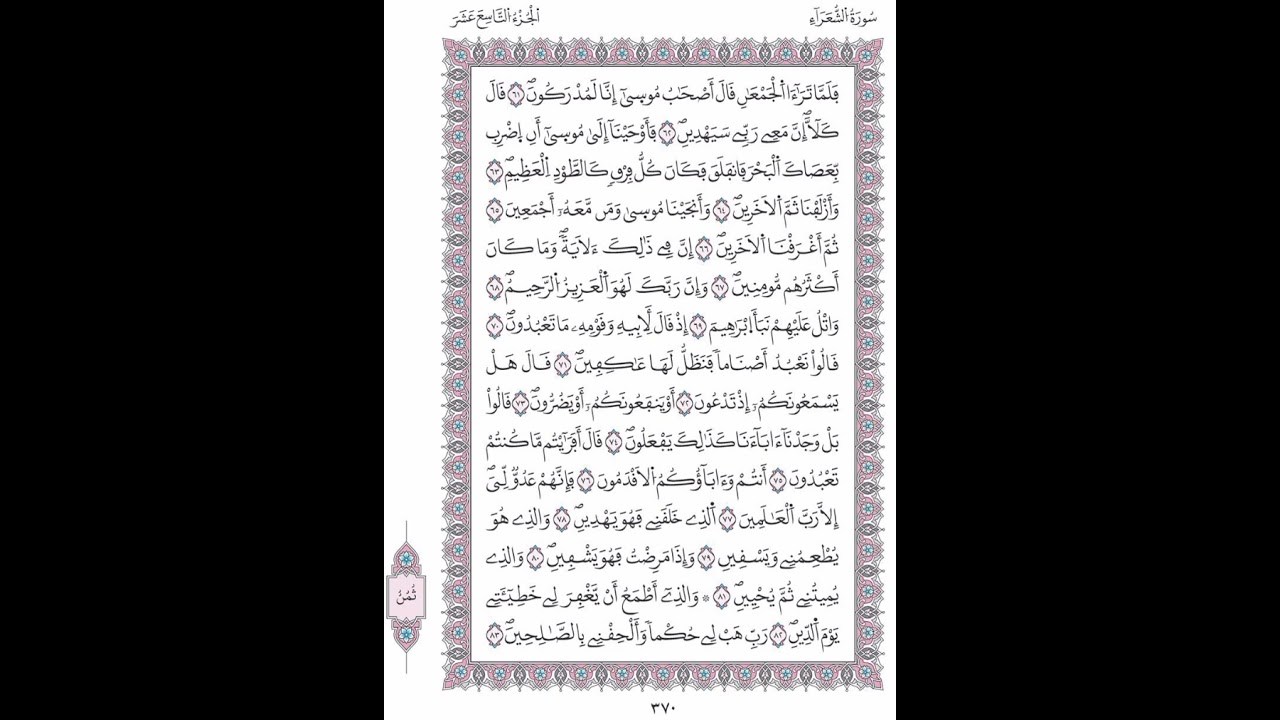 سُورَةُ الشُّعَرَآءِ
الْجُزْءُ التَّاسِعَ عَشَرَ
فَلَمَّا تَرَٰٓءَا اَ۬لْجَمْعَٰنِ قَالَ أَصْحَٰبُ مُوس۪يٰٓ إِنَّا لَمُدْرَكُونَۖ ٦١ قَالَ
كَلَّآۖ إِنَّ مَعِے رَبِّے سَيَهْدِينِۖ ٦٢ فَأَوْحَيْنَآ إِلَىٰ مُوس۪يٰٓ أَنِ اِ۪ضْرِب
بِّعَصَاكَ اَ۬لْبَحْرَ فَانفَلَقَ فَكَانَ كُلُّ فِرْقٖ كَالطَّوْدِ اِ۬لْعَظِيمِۖ ٦٣
وَأَزْلَفْنَا ثَمَّ اَ۬لَاخَرِينَۖ ٦٤ وَأَنجَيْنَا مُوس۪يٰ وَمَن مَّعَهُۥٓ أَجْمَعِينَ ٦٥
ثُمَّ أَغْرَقْنَا اَ۬لَاخَرِينَۖ ٦٦ إِنَّ فِے ذَٰلِكَ ءَلَايَةٗۖ وَمَا كَانَ
أَكْثَرُهُم مُّومِنِينَۖ ٦٧ وَإِنَّ رَبَّكَ لَهُوَ اَ۬لْعَزِيزُ اُ۬لرَّحِيمُۖ ٦٨
وَاتْلُ عَلَيْهِمْ نَبَأَ اِ۪بْرَٰهِيمَ ٦٩ إِذْ قَالَ لِأَبِيهِ وَقَوْمِهِۦ مَا تَعْبُدُونَۖ ٧٠
قَالُواْ نَعْبُدُ أَصْنَاماٗ فَنَظَلُّ لَهَا عَٰكِفِينَۖ ٧١ قَالَ هَلْ
يَسْمَعُونَكُمُۥٓ إِذْ تَدْعُونَ ٧٢ أَوْ يَنفَعُونَكُمُۥٓ أَوْ يَضُرُّونَۖ ٧٣ قَالُواْ
بَلْ وَجَدْنَآ ءَابَآءَنَا كَذَٰلِكَ يَفْعَلُونَۖ ٧٤ قَالَ أَفَرَٰٓيْتُم مَّا كُنتُمْ
تَعْبُدُونَ ٧٥ أَنتُمْ وَءَابَآؤُكُمُ اُ۬لَاقْدَمُونَ ٧٦ فَإِنَّهُمْ عَدُوّٞ لِّيَۖ
إِلَّا رَبَّ اَ۬لْعَٰلَمِينَ ٧٧ اَ۬لذِے خَلَقَنِے فَهُوَ يَهْدِينِۖ ٧٨ وَالذِے هُوَ
يُطْعِمُنِے وَيَسْقِينِ ٧٩ وَإِذَا مَرِضْتُ فَهُوَ يَشْفِينِۖ ٨٠ وَالذِے
يُمِيتُنِے ثُمَّ يُحْيِينِۖ ٨١ ۞ وَالذِےٓ أَطْمَعُ أَنْ يَّغْفِرَ لِے خَطِيٓـَٔتِے
يَوْمَ اَ۬لدِّينِۖ ٨٢ رَبِّ هَبْ لِے حُكْماٗ وَأَلْحِقْنِے بِالصَّٰلِحِينَۖ ٨٣
ثُمُنُ
٣٧٠